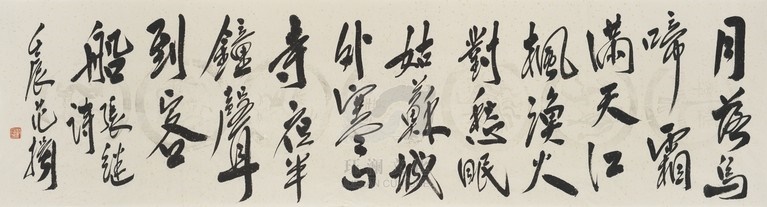 月落烏
啼霜
滿天江
楓漁火
對愁眠
姑蘇城
外寒山
寺夜半
鐘聲
到客
船
張繼
詩
壬辰范